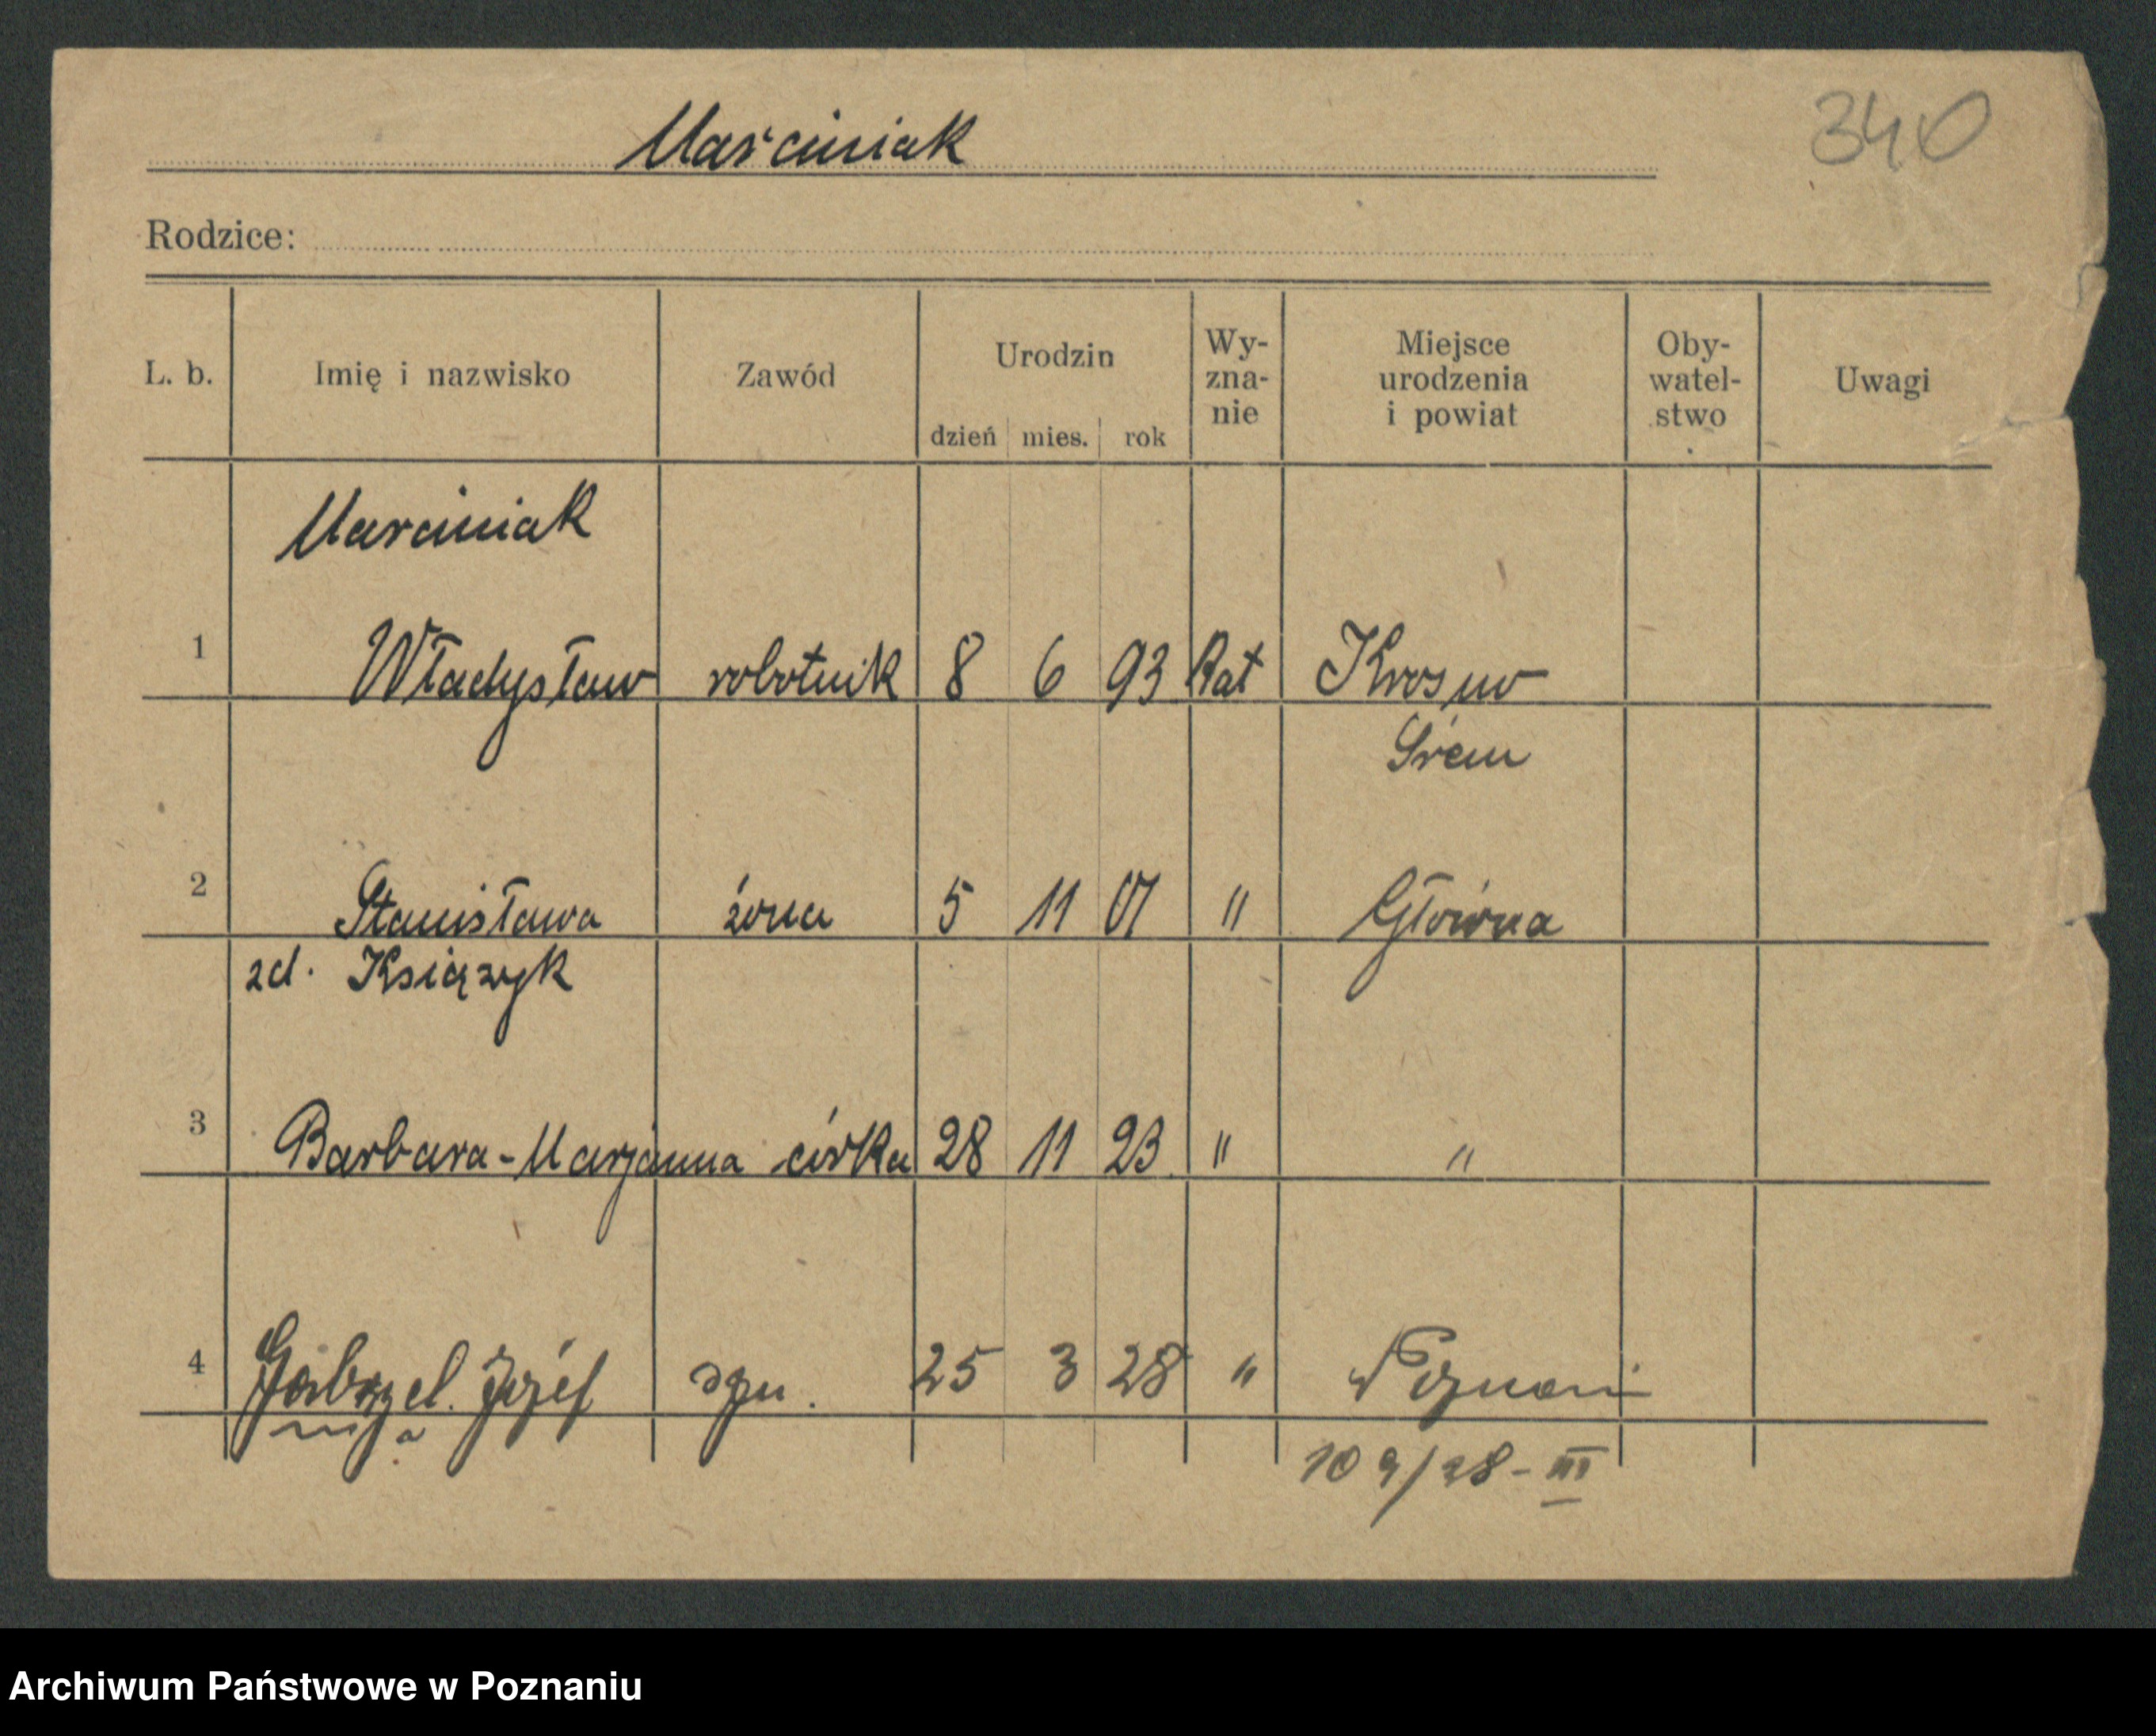 Marciniak
340
Rodzice:
L. b. Imię i nazwisko Zawód Urodzin dzień mies. rok Wy-zna-nie Miejsce urodzenia i powiat Oby-watel-stwo Uwagi
Marciniak
1 Władysław robotnik 8 6 93 Kat Krosno
Śrem
2 Stanisława żona 5 11 01 " Główna
zd. Książyk
3 Barbara-Marjanna córka 28 11 23 " "
4 Gabrjel. Józef syn. 25 3 28 " Poznań
109/28-III
Archiwum Państwowe w Poznaniu